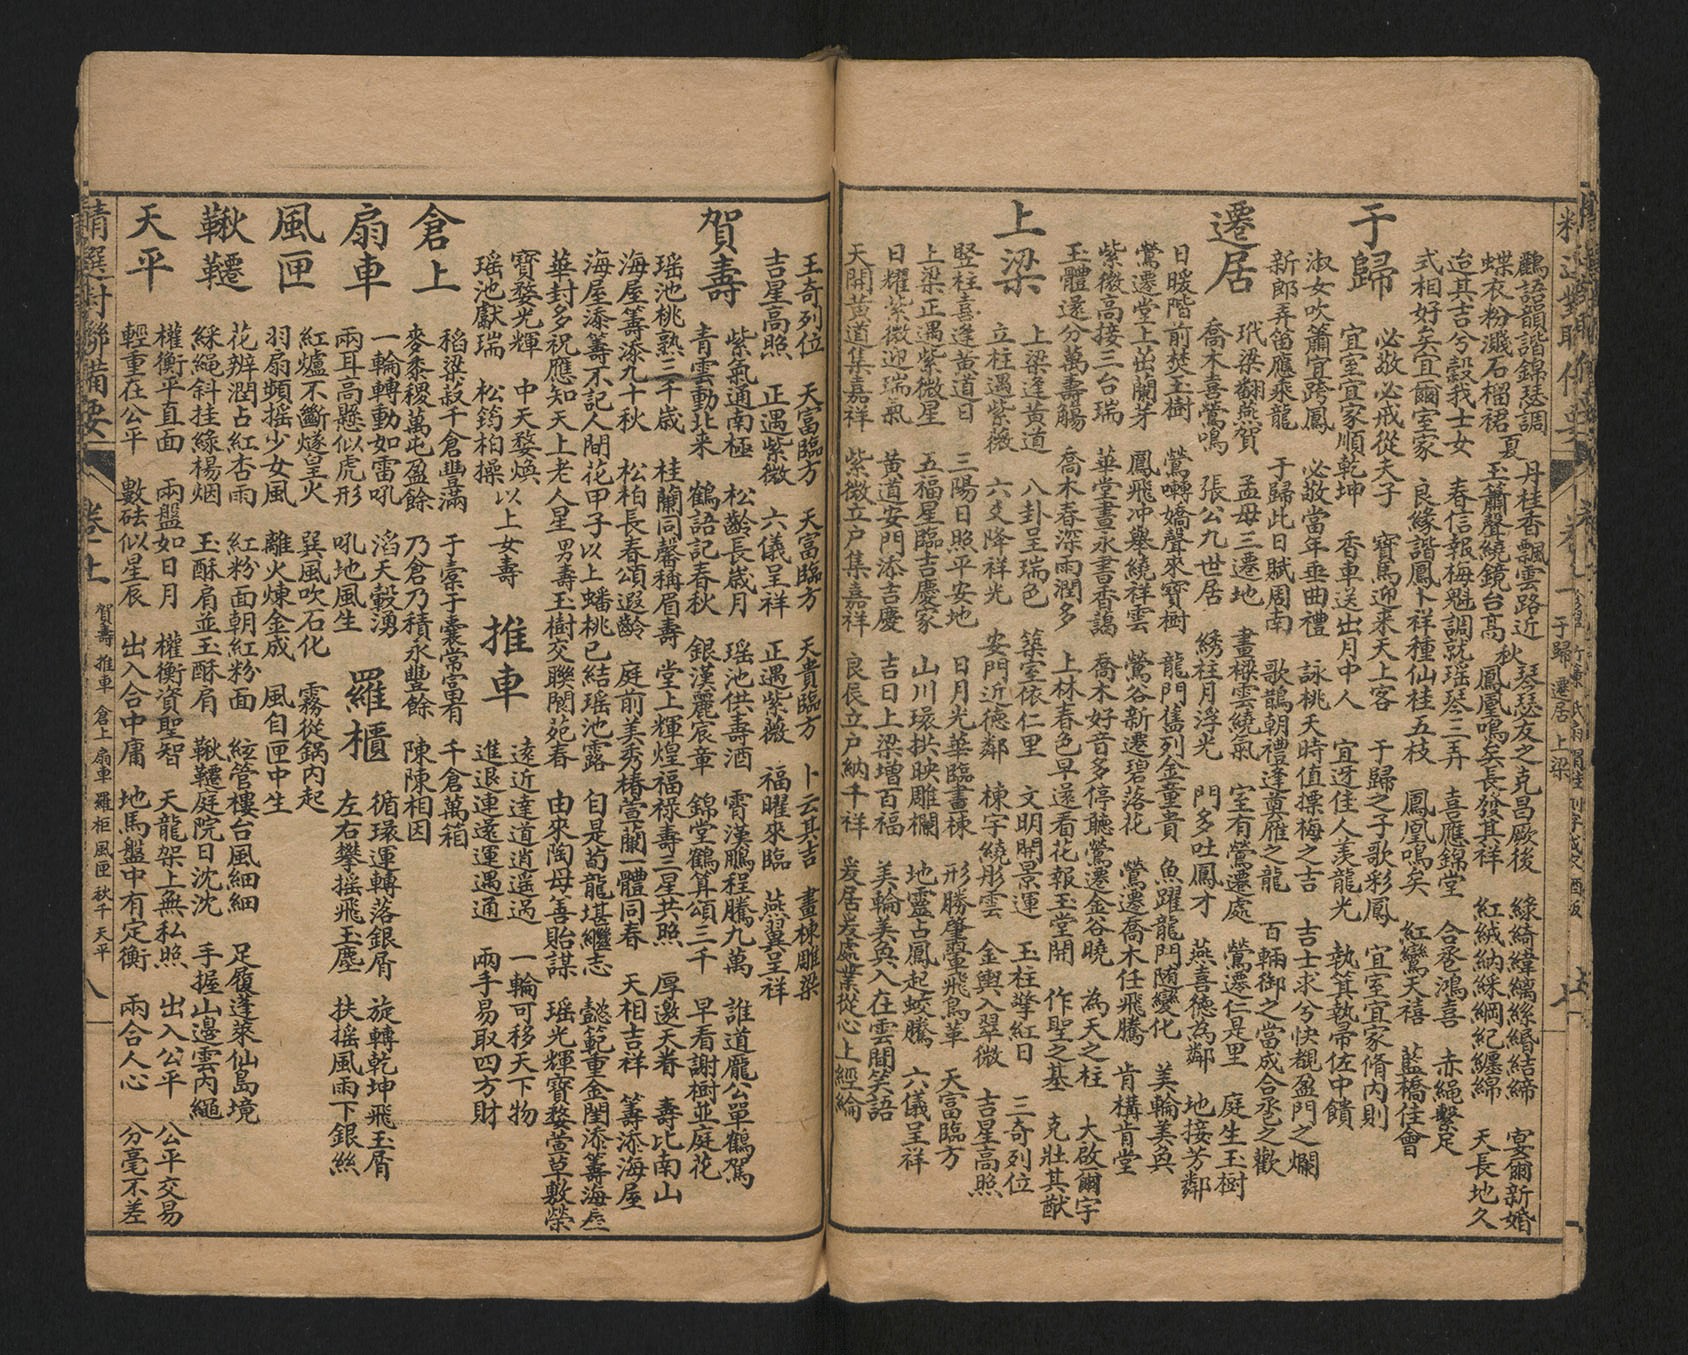 鸝語韻諧錦瑟調 夏 丹桂香飄雲路近 琴瑟友之克昌厥後 綠綺緯縭絲緡結締 宴爾新婚
蝶衣粉濺石榴裙 玉簫聲繞鏡台高 秋 鳳凰鳴矣長發其祥 紅絨納綵綱紀纏綿 天長地久
迨其吉兮穀我士女 春信報梅魁調就瑤琴三弄 喜應錦堂 合卺鴻喜 赤繩繫足
式相好矣宜爾室家 良緣諧鳳卜祥種仙桂五枝 鳳凰鳴矣 紅鸞天禧 藍橋佳會
于歸 必敬必戒從夫子 寶馬迎來天上客 于歸之子歌彩鳳 宜室宜家脩內則
宜室宜家順乾坤 香車送出月中人 宜迓佳人羨龍光 執箕執帚佐中饋
淑女吹簫宜跨鳳 必敬當年垂曲禮 詠桃夭時值摽梅之吉 吉士求兮快覩盈門之爛
新郎弄笛應乘龍 于歸此日賦周南 歌鵲朝禮逢奠雁之龍 百輛御之當成合丞之歡
遷居 玳梁翻燕賀 孟母三遷地 畫樑雲繞氣 室有鶯遷處 鶯遷仁是里 庭生玉樹
喬木喜鶯鳴 張公九世居 綉柱月浮光 門多吐鳳才 燕喜德為鄰 地接芳鄰
日暖階前焚玉樹 鶯囀嬌聲來寶樹 龍門舊列金童貴 魚躍龍門随變化 美輪美奐
鶯遷堂上茁蘭芽 鳳飛冲舉繞祥雲 鶯谷新遷碧落花 鶯遷喬木任飛騰 肯構肯堂
紫微高接三台瑞 華堂晝永書香譪 喬木好音多停聽鶯遷金谷曉 為天之柱 大啟爾宇
玉體遙分萬壽觴 喬木春深雨潤多 上林春色早遂看花報玉堂開 作聖之基 克壯其猷
上梁 上梁逢黃道 八卦呈瑞色 築室依仁里 文明開景運 玉柱擎紅日 三奇列位
立柱遇紫薇 六爻降祥光 安門近德鄰 棟宇繞彤雲 金輿入翠微 吉星高照
竪柱喜逢黃道日 三陽日照平安地 日月光華臨畫棟 形勝肇翬飛鳥革 天富臨方
上梁正遇紫微星 五福星臨吉慶家 山川環拱映雕欄 地靈占鳳起蛟騰 六儀呈祥
日耀紫微迎瑞氣 黃道安門添吉慶 吉日上梁增百福 美輪美奐入在雲間笑語
天開黃道集嘉祥 紫微立戶集嘉祥 良辰立戶納千祥 爰居爰處業從心上經綸
王奇列位 天富臨方 天富臨方 天貴臨方 卜云其吉 畫棟雕梁
吉星高照 正遇紫微 六儀呈祥 正遇紫薇 福曜來臨 燕翼呈祥
賀壽 紫氣通南極 松齡長歲月 瑤池供壽酒 霄漢鵬程騰九萬 誰道龐公單鶴駕
青雲動北來 鶴語記春秋 銀漢麗宸章 錦堂鶴算頌三千 早看謝樹並庭花
瑤池桃熟三千歲 桂蘭同馨稱眉壽 堂上輝煌福祿壽三星共照 厚邀天眷 壽比南山
海屋籌添九十秋 松柏長春頌遐齡 庭前美秀椿萱蘭一體同春 天相吉祥 籌添海屋
海屋添籌不記人間花甲子以上蟠桃已結瑤池露 自是荀龍堪繼志 懿範重金閨添籌海屋
華封多祝應知天上老人星男壽玉樹交聯閬苑春 由來陶母善貽謀 瑤光輝寶婺萱草敷榮
寶婺光輝 中天婺煥 以上女壽 推車 遠近達道逍遥過 一輪可移天下物
瑤池獻瑞 松筠柏操 進退連還運遇通 兩手易取四方財
倉上 稻粱菽千倉豐滿 于槖于囊常富有 千倉萬箱
麥黍稷萬屯盈餘 乃倉乃積永豐餘 陳陳相因
扇車 一輪轉動如雷吼 滔天轂湧 羅櫃 循環運轉落銀屑 旋轉乾坤飛玉屑
兩耳高懸似虎形 吼地風生 左右攀摇飛玉塵 扶摇風雨下銀絲
風匣 紅爐不斷燧皇火 巽風吹石化 霧從鍋內起
羽扇頻摇少女風 離火煉金成 風自匣中生
鞦韆 花辨潤占紅杏雨 紅粉面朝紅粉面 絃管樓台風細細 足履蓬萊仙島境
綵繩斜挂綠楊烟 玉酥肩並玉酥肩 鞦韆庭院日沈沈 手握山邉雲內繩
天平 權衡平直面 兩盤如日月 權衡資聖智 天龍架上無私照 出入公平 公平交易
輕重在公平 數砝似星辰 出入合中庸 地馬盤中有定衡 兩合人心 分毫不差
精選對聯備要 卷上 賀壽 推車 倉上 扇車 羅柜 風匣 秋千 天平 八
于歸 遷居 上梁